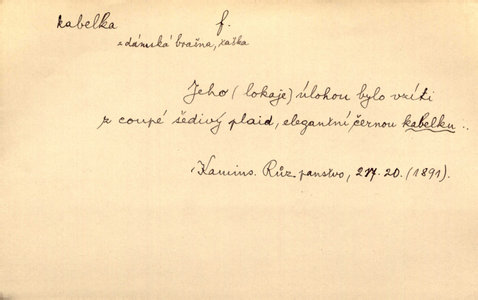 kabelka f.
= dámská brašna, taška
Jeho (lokaje) úlohou bylo vzíti
z coupé šedivý plaid, elegantní černou kabelku ..
Kamins. Růz. panstvo, 217. 20. (1891).